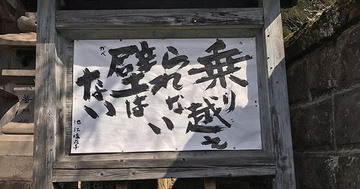 乗り越え
られない
壁は
かべ
ない